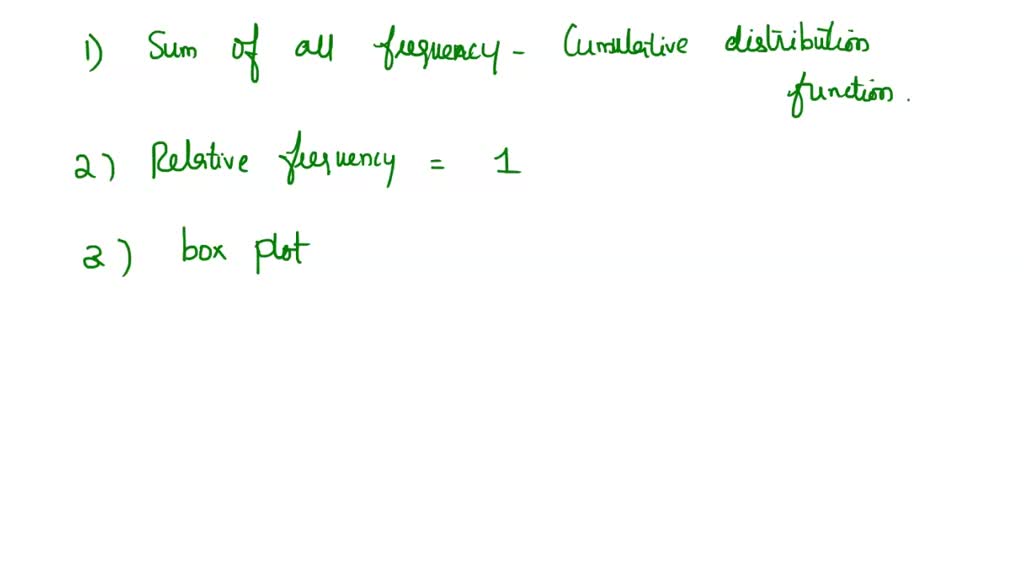 1) Sum of all frequency - Cumulative distribution
function.
2) Relative frequency = 1
3) box plot